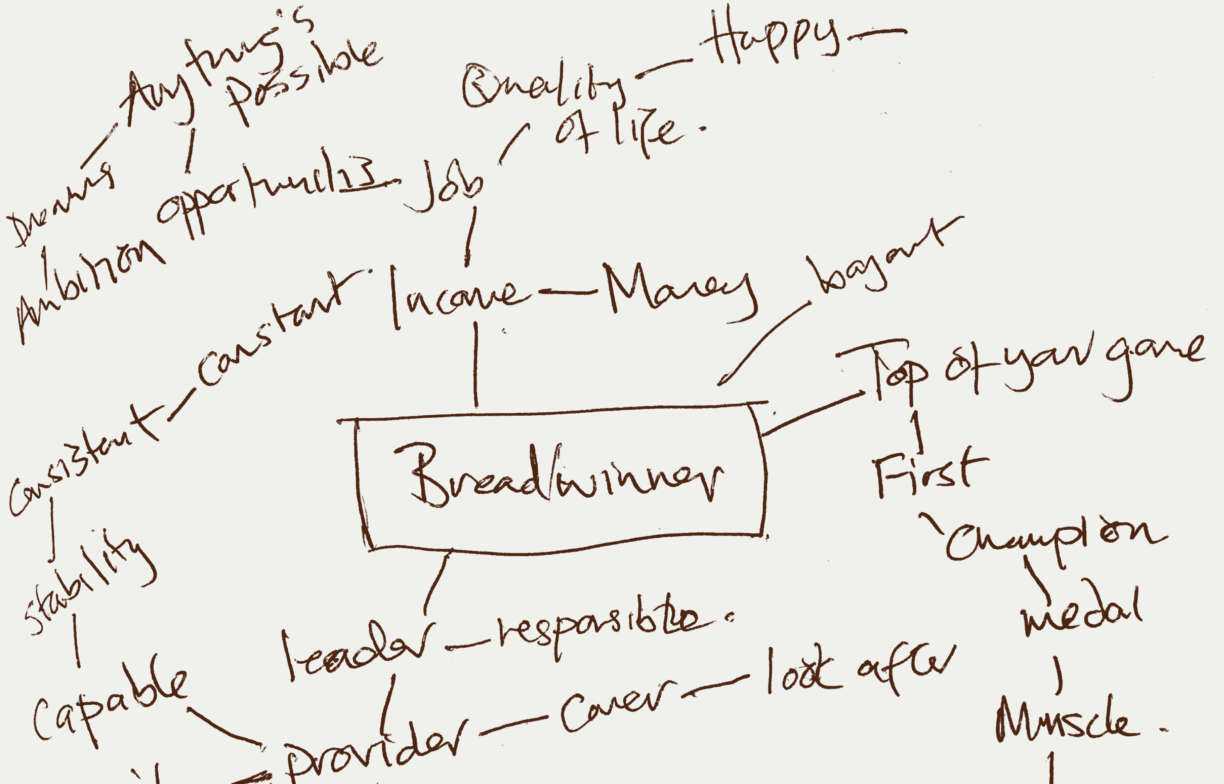 Anything's
possible
Happy
Quality
of life.
Dreams
opportunities
Job
Ambition
Income
Money
constant
Top of your game
Consistent
Breadwinner
First
Champion
stability
medal
leader
responsible.
Capable
look after
Muscle.
Provider